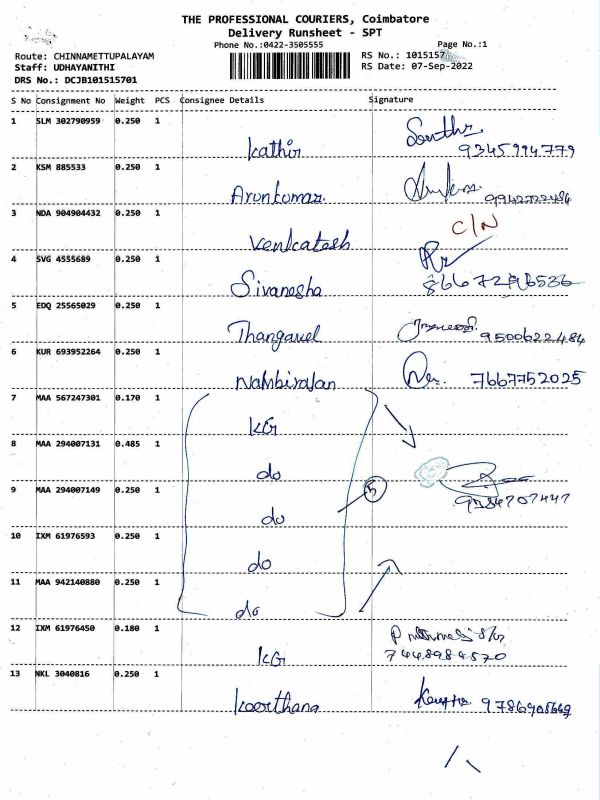 THE PROFESSIONAL COURIERS, Coimbatore
Delivery Runsheet - SPT
Phone No.:0422-3505555 Page No.:1
Route: CHINNAMETTUPALAYAM RS No.: 1015157
Staff: UDHAYANITHI RS Date: 07-Sep-2022
DRS No.: DCJB101515701
S No Consignment No Weight PCS Consignee Details Signature
1 SLM 302790959 0.250 1
Kathir 9345994779
2 KSM 885533 0.250 1
Arunkumar. 9942722486
3 NDA 904904432 0.250 1 C/N
Venkatesh
4 SVG 4555689 0.250 1
Sivanesha
5 EDQ 25565029 0.250 1
Thangavel 9500622484
6 KUR 693952264 0.250 1
Nambirajan 7667752025
7 MAA 567247301 0.170 1
KG
8 MAA 294007131 0.485 1
do
9 MAA 294007149 0.250 1 5
do 9384707447
10 IXM 61976593 0.250 1
do
11 MAA 942140880 0.250 1
do
12 IXM 61976450 0.180 1
KG
13 NKL 3040816 0.250 1
Keerthana